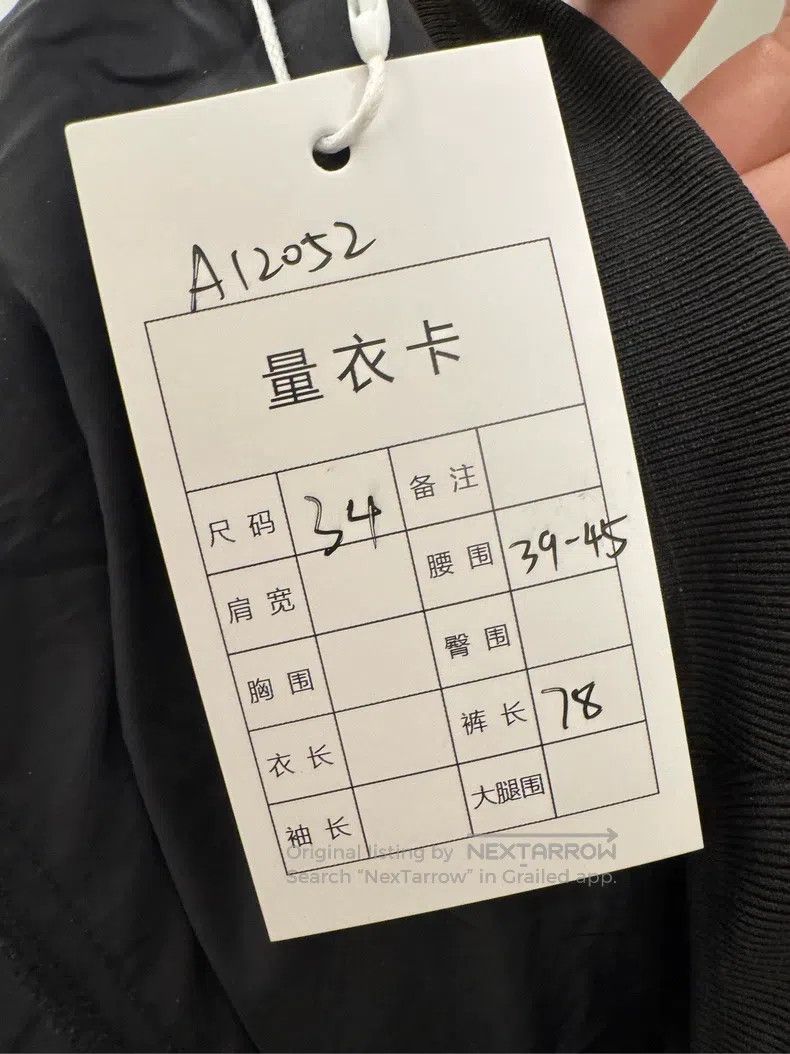 A12052
量衣卡
尺码 34 备注
肩宽 腰围 39-45
胸围 臀围
衣长 裤长 78
袖长 大腿围
Original listing by NEXTARROW
Search "NexTarrow" in Grailed app.